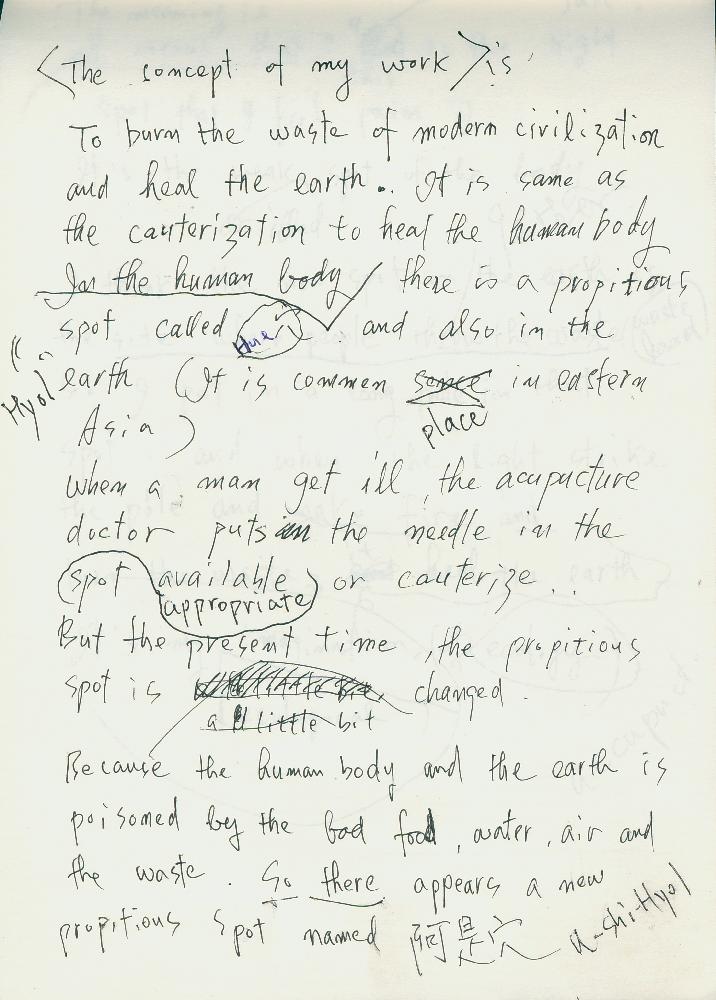 <The concept of my work> is
To burn the waste of modern civilization
and heal the earth.. It is same as
the cauterization to heal the human body
In the human body there is a propitious
spot called Hue and also in the
"Hyol"
earth (It is common some in eastern
place
Asia)
when a man get ill, the acupucture
doctor puts in the needle in the
spot available or cauterize...
appropriate
But the present time, the propitious
spot is changed.
a little bit
Because the human body and the earth is
poisoned by the bad food, water, air and
the waste. So there appears a new
propitious spot named 阿是穴 a-shi-Hyol